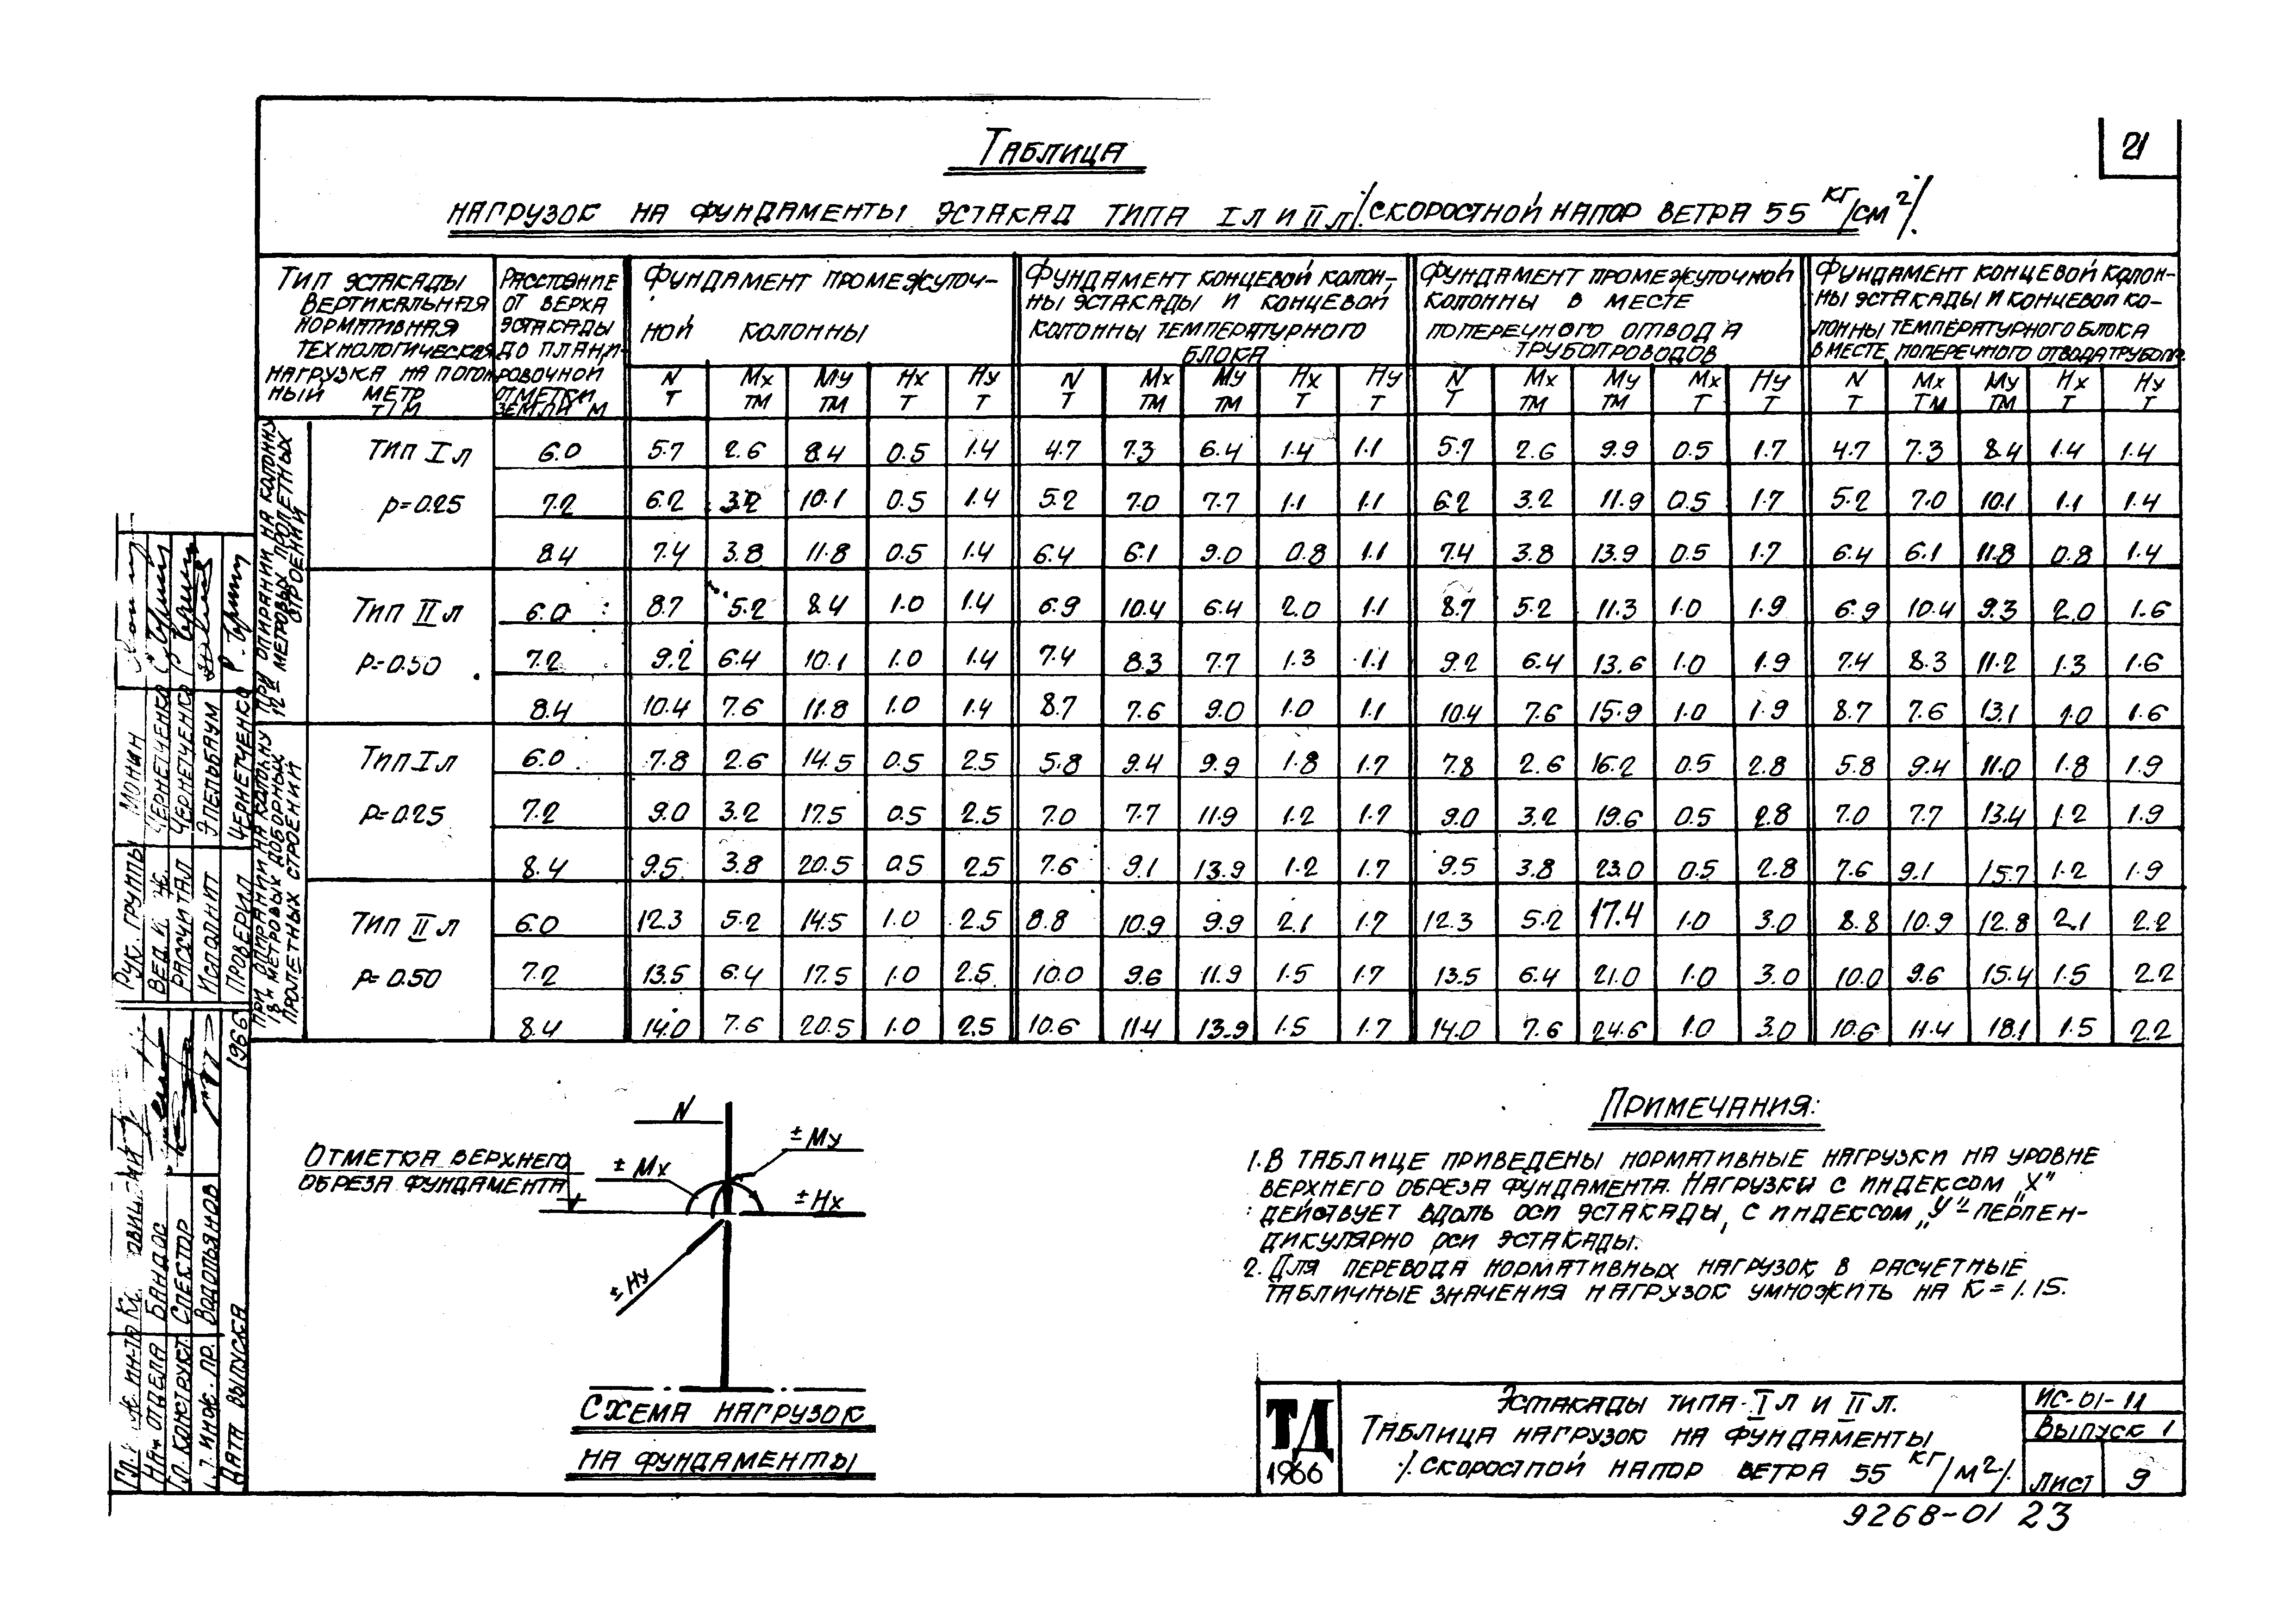 21
ТАБЛИЦА
НАГРУЗОК НА ФУНДАМЕНТЫ ЭСТАКАД ТИПА I Л И II Л /СКОРОСТНОЙ НАПОР ВЕТРА 55 КГ/СМ²/.
ТИП ЭСТАКАДЫ
ВЕРТИКАЛЬНАЯ
НОРМАТИВНАЯ
ТЕХНОЛОГИЧЕСКАЯ
НАГРУЗКА НА ПОГОН
НЫЙ МЕТР
Т/М
РАССТОЯНИЕ
ОТ ВЕРХА
ЭСТАКАДЫ
ДО ПЛАНИ-
РОВОЧНОЙ
ОТМЕТКИ
ЗЕМЛИ М
ФУНДАМЕНТ ПРОМЕЖУТОЧ-
НОЙ КОЛОННЫ
ФУНДАМЕНТ КОНЦЕВОЙ КОЛОН-
НЫ ЭСТАКАДЫ И КОНЦЕВОЙ
КОЛОННЫ ТЕМПЕРАТУРНОГО
БЛОКА
ФУНДАМЕНТ ПРОМЕЖУТОЧНОЙ
КОЛОННЫ В МЕСТЕ
ПОПЕРЕЧНОГО ОТВОДА
ТРУБОПРОВОДОВ
ФУНДАМЕНТ КОНЦЕВОЙ КОЛОН-
НЫ ЭСТАКАДЫ И КОНЦЕВОЙ КО-
ЛОННЫ ТЕМПЕРАТУРНОГО БЛОКА
В МЕСТЕ ПОПЕРЕЧНОГО ОТВОДА ТРУБОПР.
N Mx My Hx Hy N Mx My Hx Hy N Mx My Mx Hy N Mx My Hx Hy
Т ТМ ТМ Т Т Т ТМ ТМ Т Т Т ТМ ТМ Т Т Т ТМ ТМ Т Т
ПРИ ОПИРАНИИ НА КОЛОННУ
12И МЕТРОВЫХ ПРОЛЕТНЫХ
СТРОЕНИЙ
ТИП I Л 6.0 5.7 2.6 8.4 0.5 1.4 4.7 7.3 6.4 1.4 1.1 5.7 2.6 9.9 0.5 1.7 4.7 7.3 8.4 1.4 1.4
Р=0.25 7.2 6.2 3.2 10.1 0.5 1.4 5.2 7.0 7.7 1.1 1.1 6.2 3.2 11.9 0.5 1.7 5.2 7.0 10.1 1.1 1.4
8.4 7.4 3.8 11.8 0.5 1.4 6.4 6.1 9.0 0.8 1.1 7.4 3.8 13.9 0.5 1.7 6.4 6.1 11.8 0.8 1.4
ТИП II Л 6.0 8.7 5.2 8.4 1.0 1.4 6.9 10.4 6.4 2.0 1.1 8.7 5.2 11.3 1.0 1.9 6.9 10.4 9.3 2.0 1.6
Р=0.50 7.2 9.2 6.4 10.1 1.0 1.4 7.4 8.3 7.7 1.3 1.1 9.2 6.4 13.6 1.0 1.9 7.4 8.3 11.2 1.3 1.6
8.4 10.4 7.6 11.8 1.0 1.4 8.7 7.6 9.0 1.0 1.1 10.4 7.6 15.9 1.0 1.9 8.7 7.6 13.1 1.0 1.6
ПРИ ОПИРАНИИ НА КОЛОННУ
18И МЕТРОВЫХ ДОБОРНЫХ
ПРОЛЕТНЫХ СТРОЕНИЙ
ТИП I Л 6.0 7.8 2.6 14.5 0.5 2.5 5.8 9.4 9.9 1.8 1.7 7.8 2.6 16.2 0.5 2.8 5.8 9.4 11.0 1.8 1.9
Р=0.25 7.2 9.0 3.2 17.5 0.5 2.5 7.0 7.7 11.9 1.2 1.7 9.0 3.2 19.6 0.5 2.8 7.0 7.7 13.4 1.2 1.9
8.4 9.5 3.8 20.5 0.5 2.5 7.6 9.1 13.9 1.2 1.7 9.5 3.8 23.0 0.5 2.8 7.6 9.1 15.7 1.2 1.9
ТИП II Л 6.0 12.3 5.2 14.5 1.0 2.5 8.8 10.9 9.9 2.1 1.7 12.3 5.2 17.4 1.0 3.0 8.8 10.9 12.8 2.1 2.2
Р=0.50 7.2 13.5 6.4 17.5 1.0 2.5 10.0 9.6 11.9 1.5 1.7 13.5 6.4 21.0 1.0 3.0 10.0 9.6 15.4 1.5 2.2
8.4 14.0 7.6 20.5 1.0 2.5 10.6 11.4 13.9 1.5 1.7 14.0 7.6 24.6 1.0 3.0 10.6 11.4 18.1 1.5 2.2
N
± My
ОТМЕТКА ВЕРХНЕГО
ОБРЕЗА ФУНДАМЕНТА
± Mx
± Hx
± Hy
СХЕМА НАГРУЗОК
НА ФУНДАМЕНТЫ
ПРИМЕЧАНИЯ:
1. В ТАБЛИЦЕ ПРИВЕДЕНЫ НОРМАТИВНЫЕ НАГРУЗКИ НА УРОВНЕ
ВЕРХНЕГО ОБРЕЗА ФУНДАМЕНТА. НАГРУЗКИ С ИНДЕКСОМ „X"
ДЕЙСТВУЕТ ВДОЛЬ ОСИ ЭСТАКАДЫ, С ИНДЕКСОМ „У"- ПЕРПЕН-
ДИКУЛЯРНО ОСИ ЭСТАКАДЫ.
2. ДЛЯ ПЕРЕВОДА НОРМАТИВНЫХ НАГРУЗОК В РАСЧЕТНЫЕ
ТАБЛИЧНЫЕ ЗНАЧЕНИЯ НАГРУЗОК УМНОЖИТЬ НА К=1.15.
ТД
1966
ЭСТАКАДЫ ТИПА I Л И II Л.
ТАБЛИЦА НАГРУЗОК НА ФУНДАМЕНТЫ
/СКОРОСТНОЙ НАПОР ВЕТРА 55 КГ/М²/.
ИС-01-11
ВЫПУСК 1
ЛИСТ 9
9268-01 23
РУК. ГРУППЫ МОНИН
ВЕД. И Ж. ЧЕРНЕТЧЕНКО
РАССЧИТАЛ ЧЕРНЕТЧЕНКО
ИСПОЛНИЛ ЭПЕЛЬБАУМ
ПРОВЕРИЛ ЧЕРНЕТЧЕНКО
НАЧ ОТДЕЛА БАНДОС
ГЛ. КОНСТРУКТ. СПЕКТОР
ИНЖ. ПР. ВОДОПЬЯНОВ
ДАТА ВЫПУСКА 1966